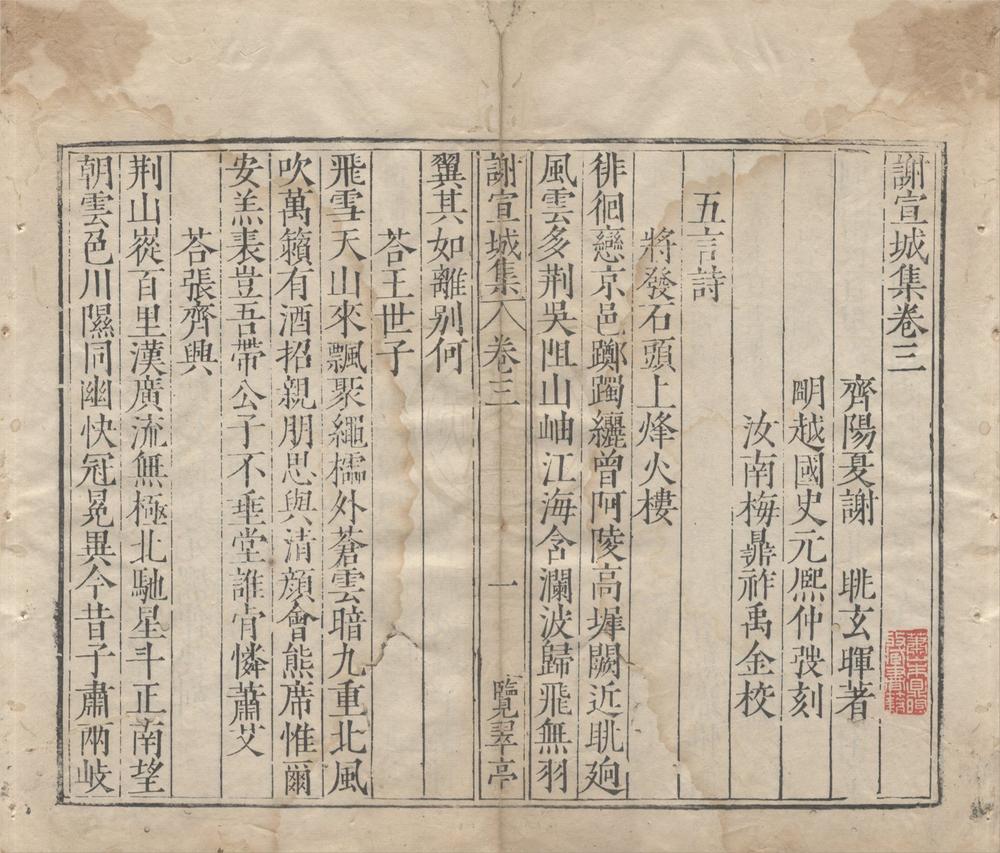 謝宣城集卷三
齊陽夏謝　朓玄暉著
明越國史元熈仲弢刻
汝南梅鼎祚禹金校
五言詩
將發石頭上烽火樓
徘徊戀京邑躑躅纚曾阿陵高墀闕近眺逈
風雲多荆吳阻山岫江海含瀾波歸飛無羽
謝宣城集　卷三　一　覽翠亭
翼其如離别何
荅王世子
飛雪天山來飄聚繩櫺外蒼雲暗九重北風
吹萬籟有酒招親朋思與清顔會熊席惟爾
安羔裘豈吾帶公子不垂堂誰肯憐蕭艾
荅張齊興
荆山嵸百里漢廣流無極北馳星斗正南望
朝雲色川隰同幽快冠冕異今昔子肅兩岐